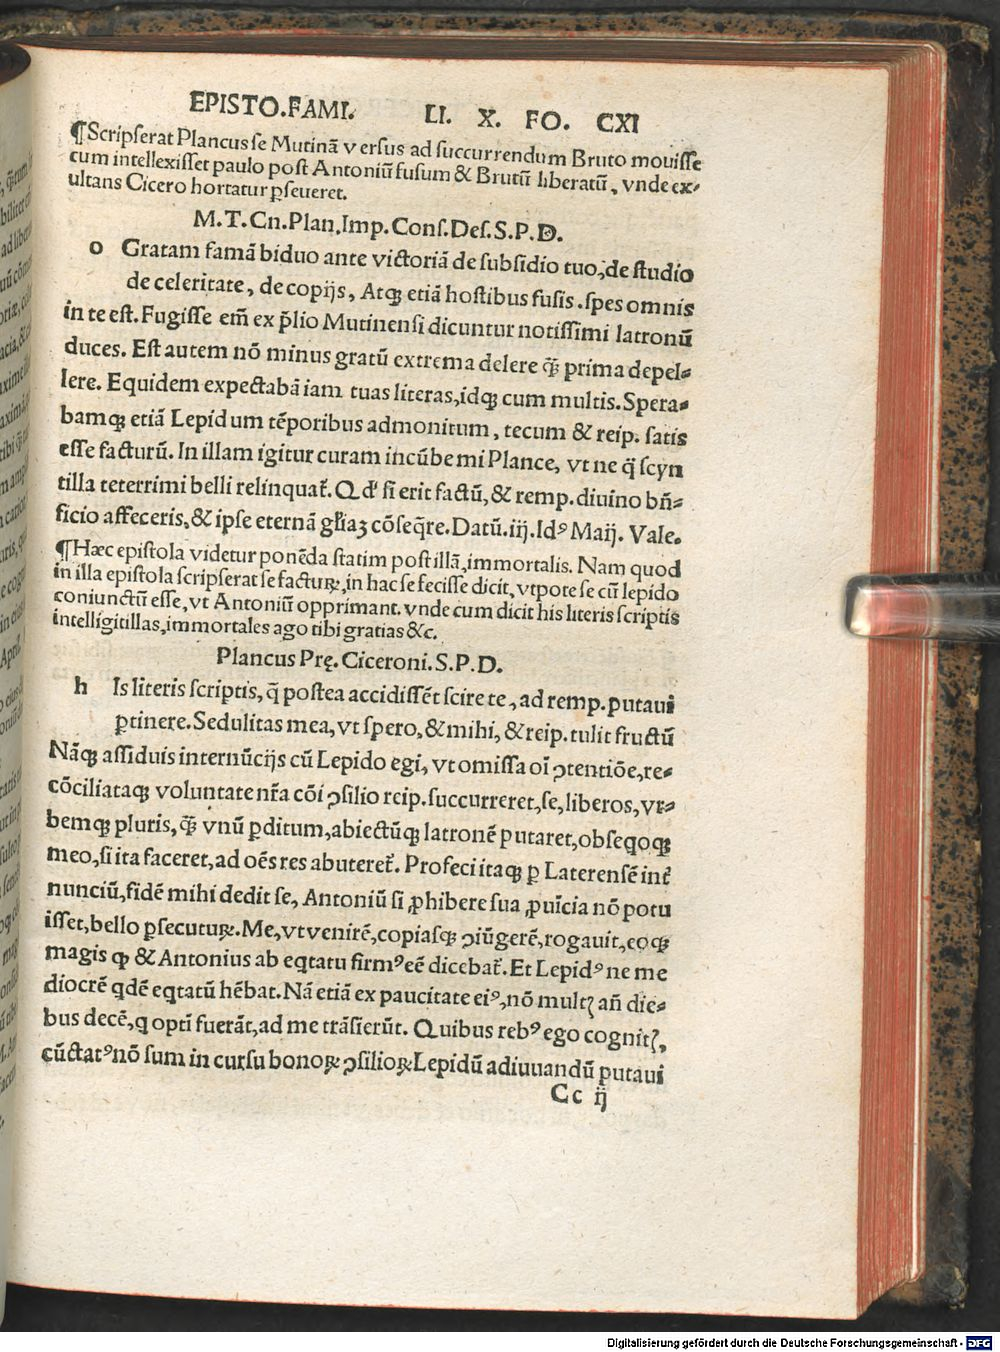 EPISTO.FAMI. LI. X. FO. CXI
¶Scripserat Plancus se Mutinã versus ad succurrendum Bruto mouisse
cum intellexisset paulo post Antoniũ fusum & Brutũ liberatũ, vnde ex-
ultans Cicero hortatur ꝑseueret.
M.T.Cn.Plan.Imp.Cons.Des.S.P.D.
o Gratam famã biduo ante victoriã de subsidio tuo, de studio
de celeritate, de copijs, Atqꝫ etiã hostibus fusis .spes omnis
in te est. Fugisse em̃ ex p̃lio Mutinensi dicuntur notissimi latronũ
duces. Est autem nõ minus gratũ extrema delere q̃ꝫ prima depel-
lere. Equidem expectabã iam tuas literas, idqꝫ cum multis. Spera-
bamqꝫ etiã Lepidum tẽporibus admonitum, tecum & reip. satis
esse facturũ. In illam igitur curam incũbe mi Plance, vt ne q̃ scyn
tilla teterrimi belli relinquat᷒. Qd' si erit factũ, & remp. diuino bñ-
ficio affeceris, & ipse eternã gl̃iaꝫ cõseq̃re. Datũ. iij. Idꝰ Maij. Vale.
¶Hæc epistola videtur ponẽda statim post illã, immortalis. Nam quod
in illa epistola scripserat se facturꝝ, in hac se fecisse dicit, vtpote se cũ lepido
coniunctũ esse, vt Antoniũ opprimant. vnde cum dicit his literis scriptis
intelligit illas, immortales ago tibi gratias &c.
Plancus Prę. Ciceroni. S.P.D.
h Is literis scriptis, q̃ postea accidissẽt scire te, ad remp. putaui
ꝑtinere. Sedulitas mea, vt spero, & mihi, & reip. tulit fructũ
Nãqꝫ assiduis internũcijs cũ Lepido egi, vt omissa oĩ ꝯtentiõe, re-
cõciliataqꝫ voluntate nr̃a cõĩ ꝯsilio reip. succurreret, se, liberos, vr-
bemqꝫ pluris, q̃ꝫ vnũ ꝑditum, abiectũqꝫ latronẽ putaret, obseqoqꝫ
meo, si ita faceret, ad oẽs res abuteret᷒. Profeci itaqꝫ ꝑ Laterensẽ int᷒
nunciũ, fidẽ mihi dedit se, Antoniũ si ꝓhibere sua ꝓuĩcia nõ potu
isset, bello ꝑsecuturꝝ. Me, vt venirẽ, copiasqꝫ ꝯiũgerẽ, rogauit, eoqꝫ
magis ꝙ & Antonius ab eqtatu firmꝰ eẽ dicebat᷒. Et Lepidꝰ ne me
diocrẽ qdẽ eqtatũ hẽbat. Nã etiã ex paucitate eiꝰ, nõ multꝭ añ die-
bus decẽ, q opti fuerãt, ad me trãsierũt. Quibus rebꝰ ego cognitꝭ,
cũctatꝰ nõ sum in cursu bonoꝝ ꝯsilioꝝ Lepidũ adiuuandũ putaui
Cc ij
Digitalisierung gefördert durch die Deutsche Forschungsgemeinschaft - DFG